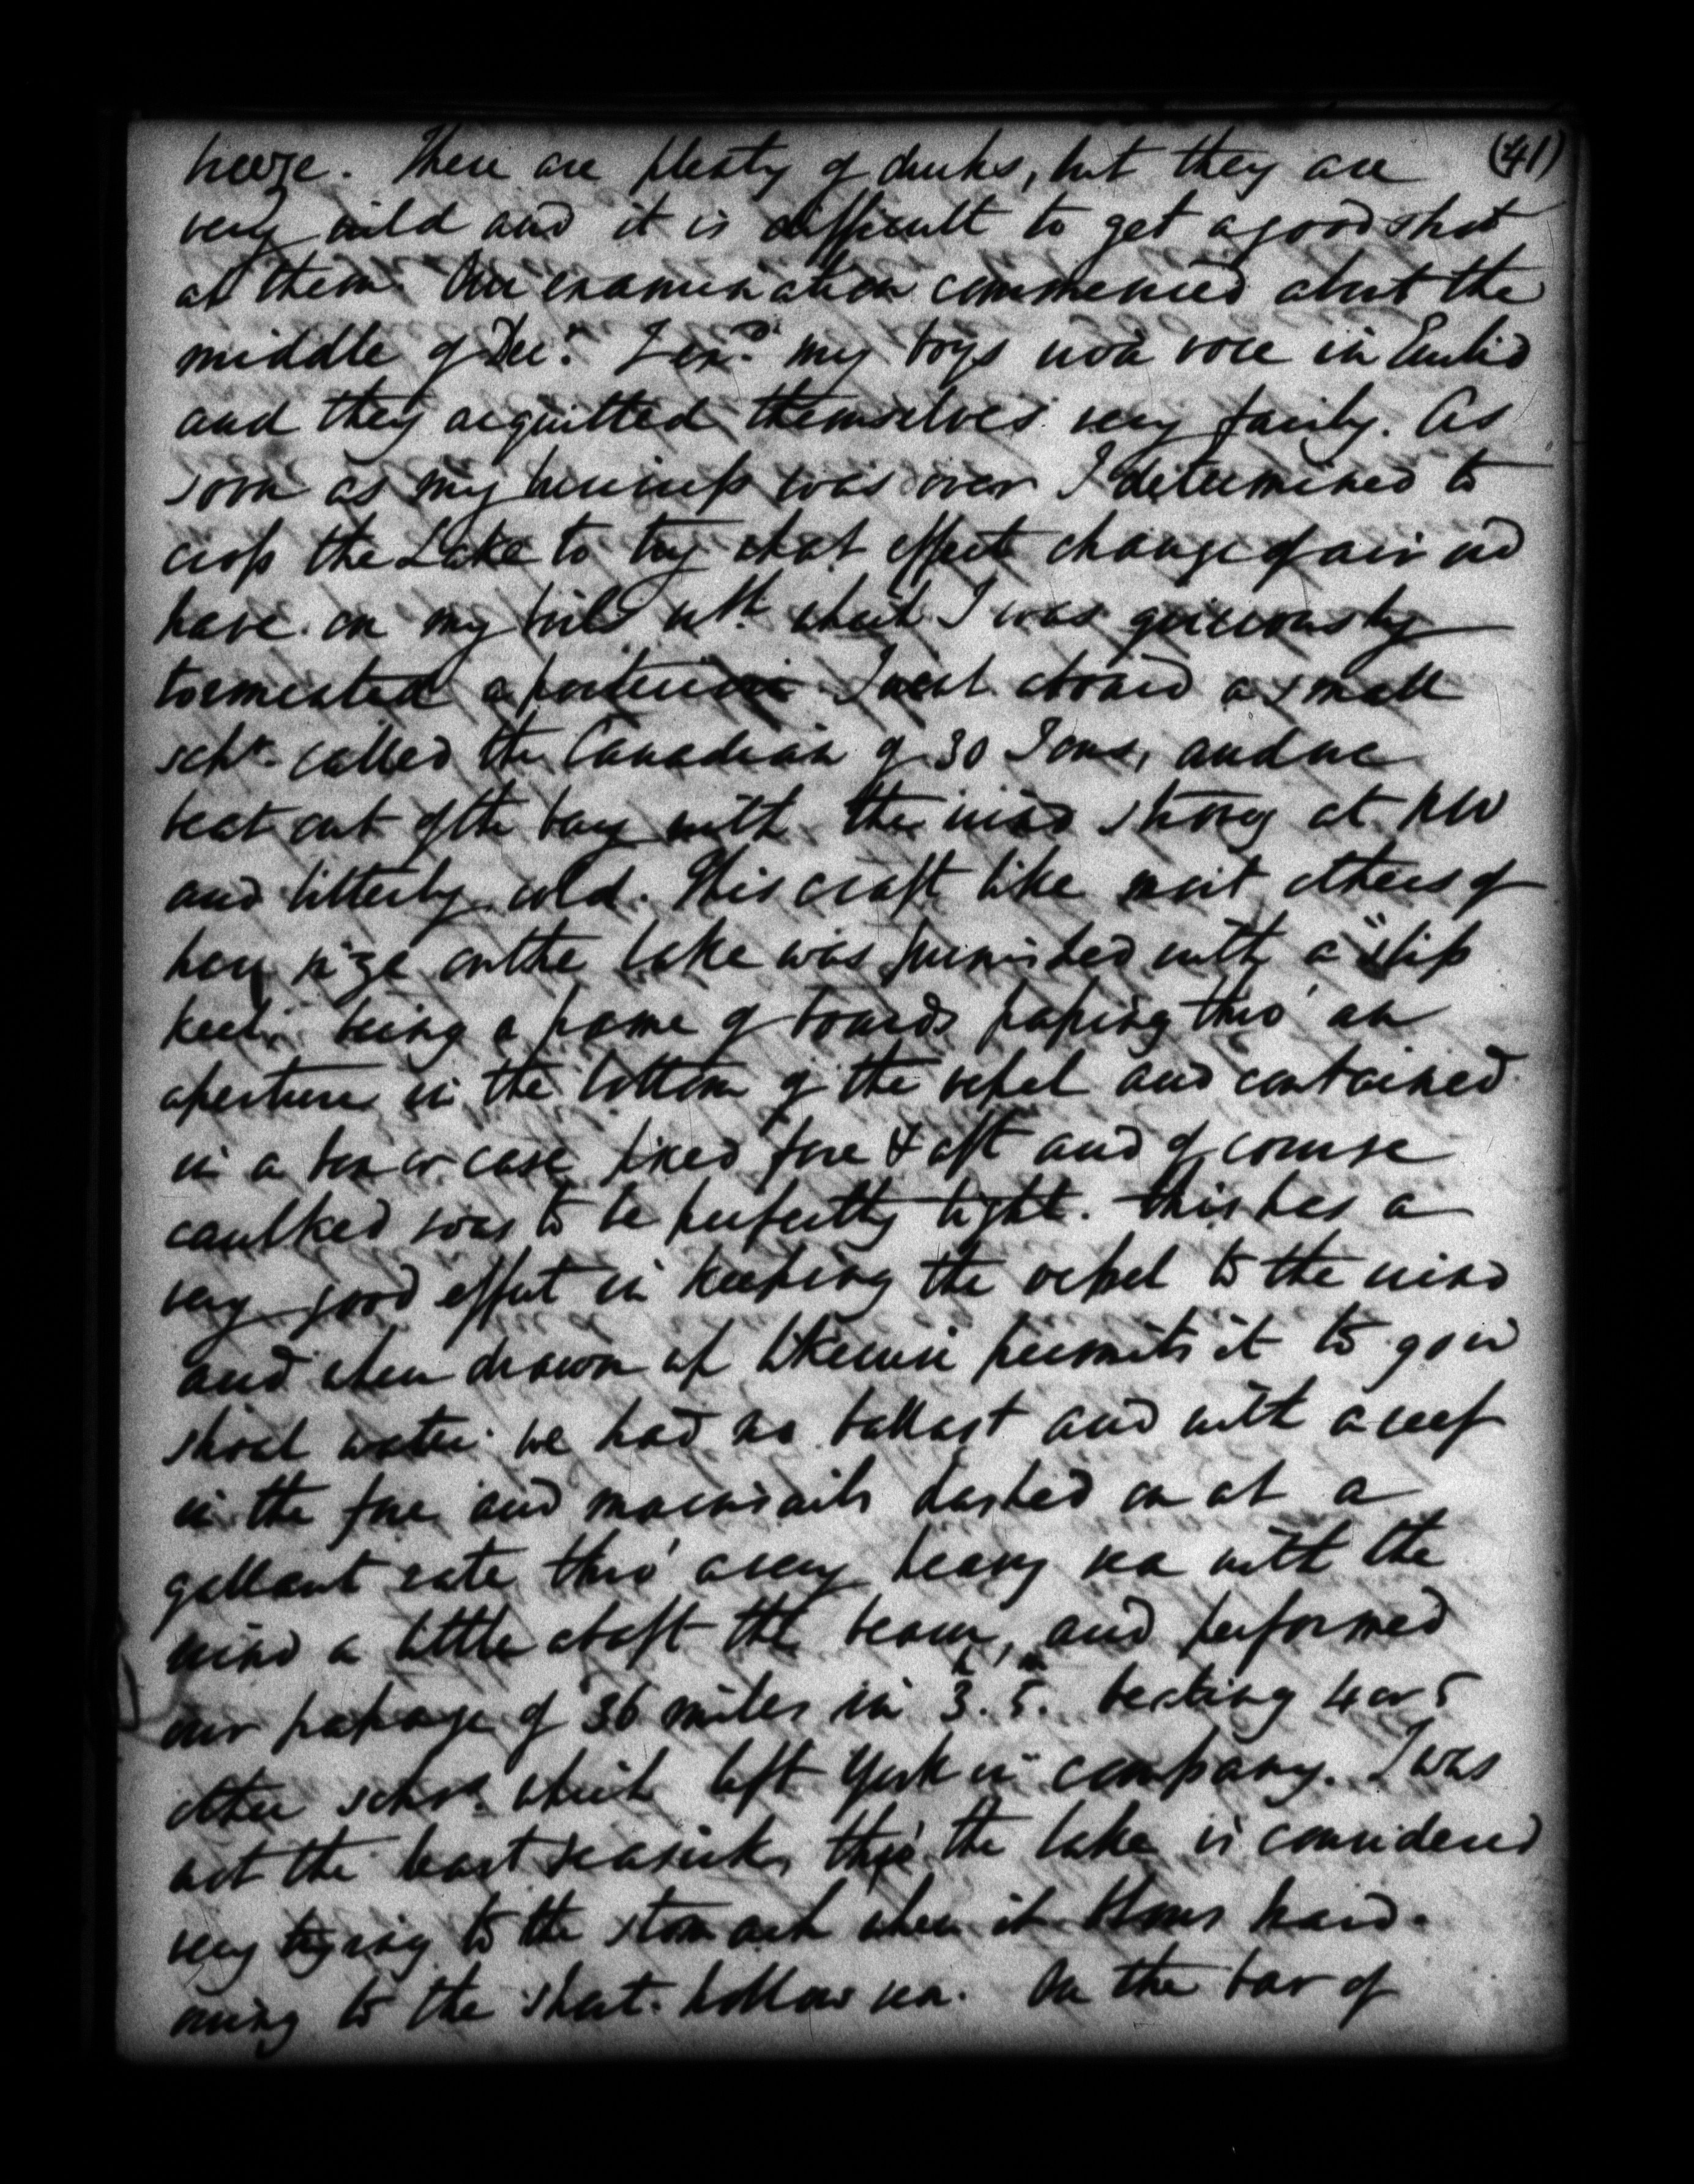 breeze. There are plenty of ducks, but they are (41)
very wild and it is difficult to get a good shot
at them. Our examination commenced about the
middle of Decr. I exd. my boys viva voce in Euclid
and they acquitted themselves very fairly. As
soon as my business was over I determined to
cross the Lake to try what effect change of air wd
have on my boils wth. which I was grievously
tormented a posteriori. I went aboard a small
schr. called the Canadian of 30 Tons, and we
beat out of the bay with the wind strong at NW
and bitterly cold. This craft like most others of
her size on the lake was furnished with a "slip
keel" being a frame of boards passing thro' an
aperture in the bottom of the vessel and contained
in a box or case fixed fore & aft and of course
caulked soas to be perfectly tight. This has a
very good effect in keeping the vessel to the wind
and when drawn up likewise permits it to go in
shoal water. we had no ballast and with a reef
in the fore and mainsails dashed on at a
gallant rate thro' a very heavy sea with the
wind a little abaft the beam, and performed
our passage of 36 miles in 3.h 5.m beating 4 or 5
other schrs. which left York in company. I was
not the least seasick, tho' the lake is considered
very trying to the stomach when it blows hard.
owing to the short hollow sea. On the bar of